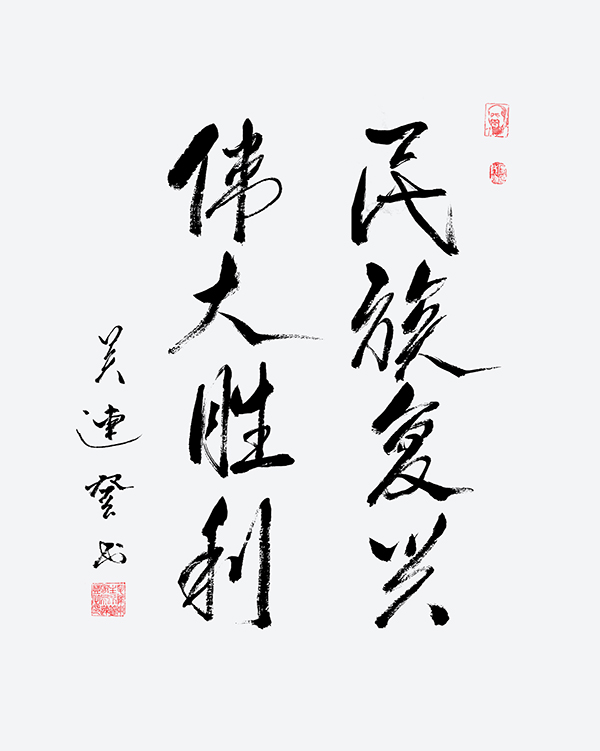 民族复兴
伟大胜利
吴连登书